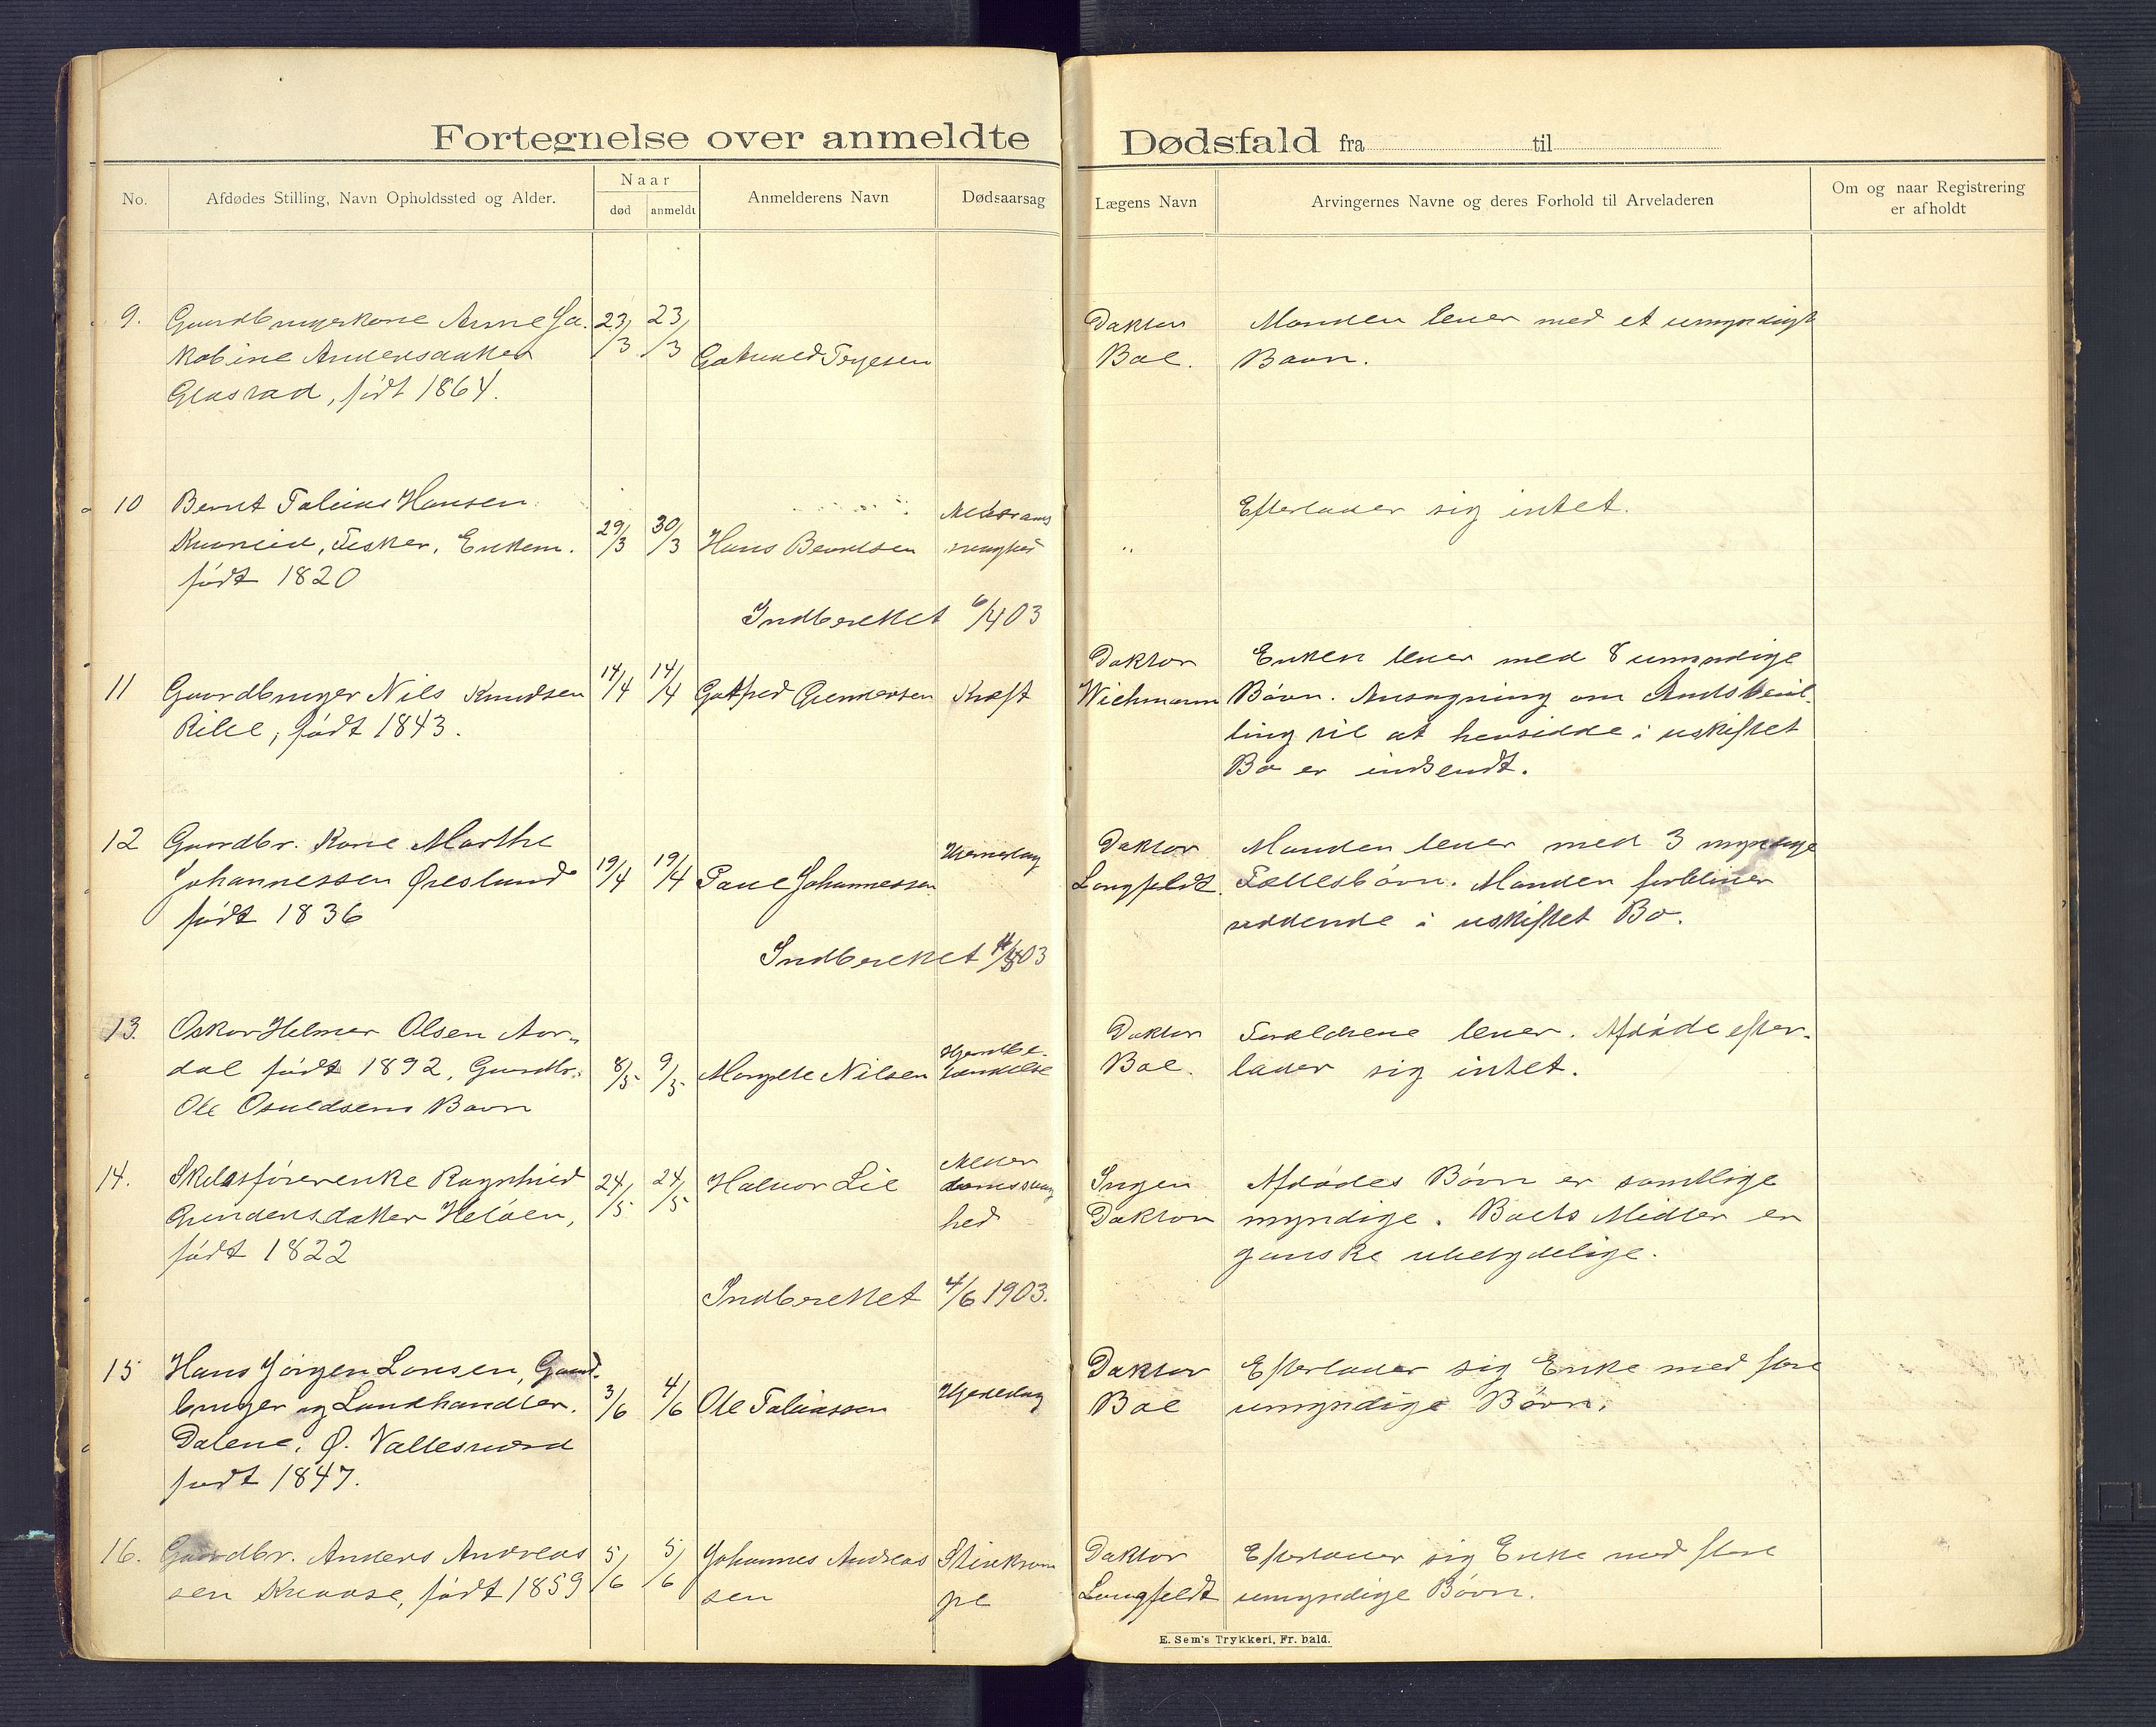 Fortegnelse over anmeldte Dødsfald fra til
No.
Afdødes Stilling, Navn Opholdssted og Alder.
Naar
død
anmeldt
Anmelderens Navn
Dødsaarsag
Lægens Navn
Arvingernes Navne og deres Forhold til Arveladeren
Om og naar Registrering
er afholdt
9. Gaardbrugerkone Anne Ja- 23/3 23/3 Doktor Manden lever med et umyndigt
kobine Andersdatter Tryesen Boe. Barn.
født 1864.
10 Bernt Tobias Hansen Alderdoms Efterlader sig intet.
Kvaneid, Fisker, Enkem. 29/3 30/3 Hans Berntsen svaghed "
født 1820
Indberettet 6/4 03
Doktor Enken lever med 8 umyndige
11 Gaardbruger Nils Knudsen 14/4 14/4 Gotfred Gundersen Kræft Wichmann Børn. Ansøgning om Amtsbevil-
født 1843. ling til at hensidde i uskiftet
Bo er indsendt.
12 Gaardbr. Kone Marthe Hjerneslag Doktor Manden lever med 3 myndige
Johannessen Øreslund 19/4 19/4 Paul Johannessen Longfeldt. Fællesbørn. Manden forbliver
født 1836 siddende i uskiftet Bo.
Indberettet 03
13. Oskar Helmer Olsen Aar- Doktor Forældrene lever. Afdøde efter-
dal født 1892, Gaardbr. 8/5 9/5 Nilsen Boe. lader sig intet.
Ole Osuldsens Barn
14. Skibsførerenke Ragnhild 24/5 24/5 Halvor Lie Alder Ingen Afdødes Børn er samtlige
Gundersdatter Heløen, domssvag Doktor myndige. Boets Midler er
født 1822 hed ganske ubetydelige.
Indberettet 4/6 1903.
15 Hans Jørgen Larsen, Gaard- Doktor Efterlader sig Enke med flere
bruger og Landhandler. 3/6 4/6 Ole Tobiassen Hjerteslag Boe umyndige Børn.
Dalene, Ø. Vallesværd
født 1847.
16. Gaardbr. Anders Andreas 5/6 5/6 Johannes Andreas Doktor Efterlader sig Enke med flere
sen Knaase, født 1859 sen Longfeldt umyndige Børn.
E. Sem's Trykkeri, Fr. hald.